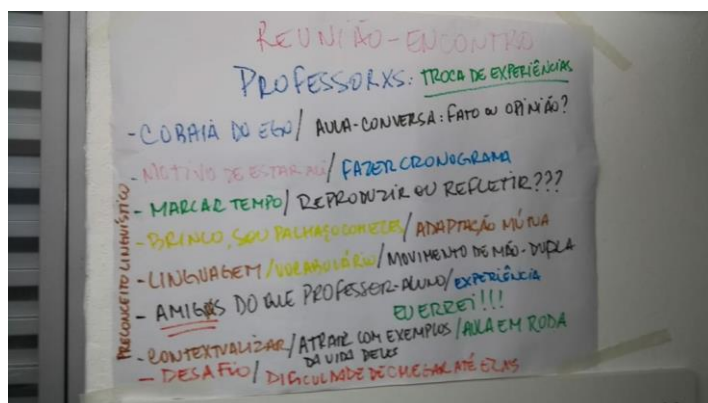 REUNIÃO-ENCONTRO
PROFESSORXS: TROCA DE EXPERIÊNCIAS
- COBAIA DO EGO / AULA-CONVERSA: FATO OU OPINIÃO?
- MOTIVO DE ESTAR ALI / FAZER CRONOGRAMA
- MARCAR TEMPO / REPRODUZIR OU REFLETIR???
- BRINCO, SOU PALHAÇO COM ELES / ADAPTAÇÃO MÚTUA
- LINGUAGEM / VOCABULÁRIO / MOVIMENTO DE MÃO-DUPLA
- AMIGXS DO QUE PROFESSOR-ALUNO / EXPERIÊNCIA
EU ERREI!!!
- CONTEXTUALIZAR / ATRAIR COM EXEMPLOS / AULA EM RODA
DA VIDA DELES
- DESAFIO / DIFICULDADE DE CHEGAR ATÉ ELXS
PRECONCEITO LINGUÍSTICO